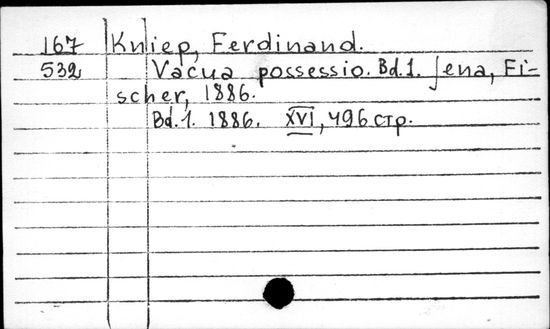 167 Kniep, Ferdinand.
532 Vacua possessio. Bd.1. Jena, Fi-
scher, 1886.
Bd.1. 1886. XVI, 496 стр.